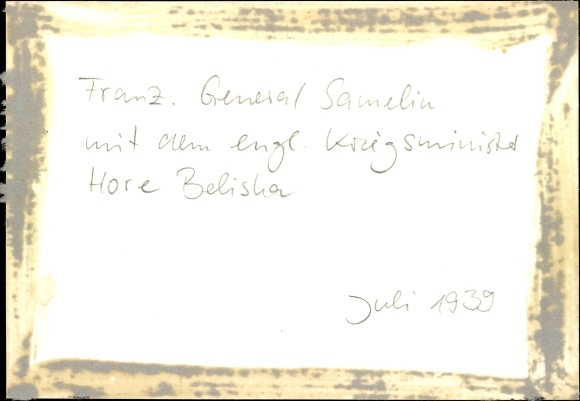 Franz. General Samelin
mit dem engl. Kriegsminister
Hore Belisha
Juli 1939